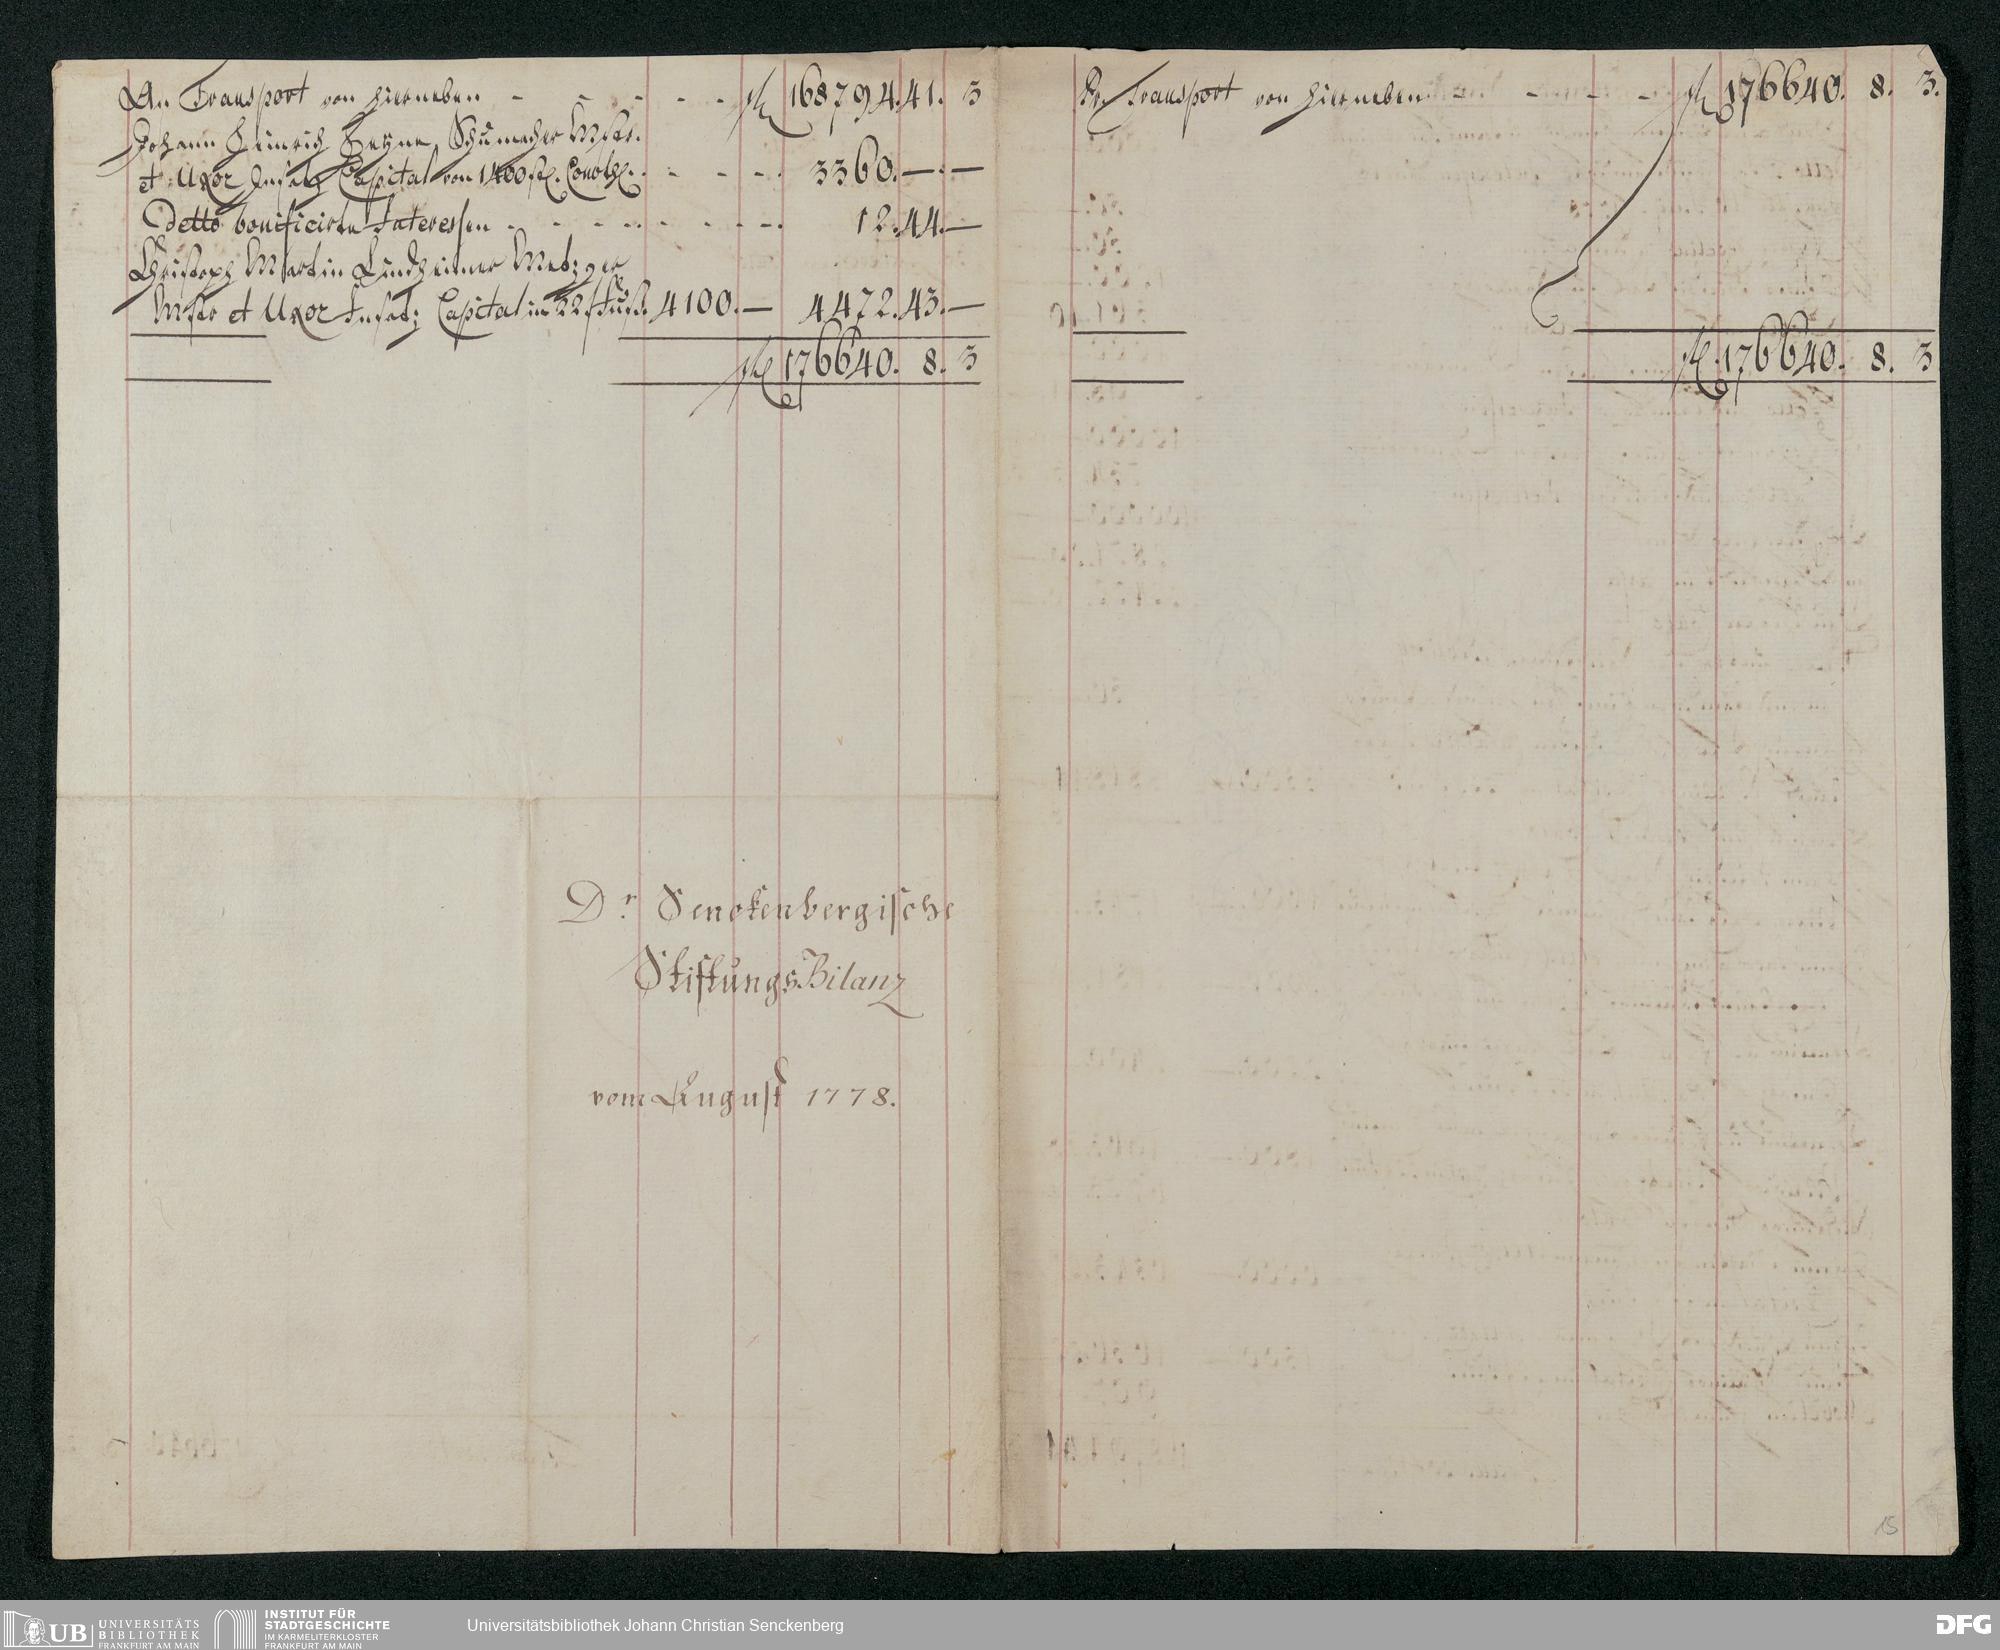 An Transport von hierneben - - - - - fl 168794. 41. 3
Johann Heinrich Heyne, Schumacher Mstr.
et Uxor Insatz Capital von 1400 fl. Convth. - - - - 3360. — . —
Detto bonificirte Interessen - - - - - - - 12. 44. —
Christoph Martin Lindheimer Metzger
Mstr et Uxor Insatz Capital in 22 f fus. 4100. — 4472. 43. —
fl 176640. 8. 3
Dr. Senckenbergische
Stiftungs Bilanz
vom August 1778.
Pr. Transport von hierneben - - - - fl 176640. 8. 3.
fl. 176640. 8. 3
15
UB UNIVERSITÄTS
BIBLIOTHEK
FRANKFURT AM MAIN
INSTITUT FÜR
STADTGESCHICHTE
IM KARMELITERKLOSTER
FRANKFURT AM MAIN
Universitätsbibliothek Johann Christian Senckenberg
DFG